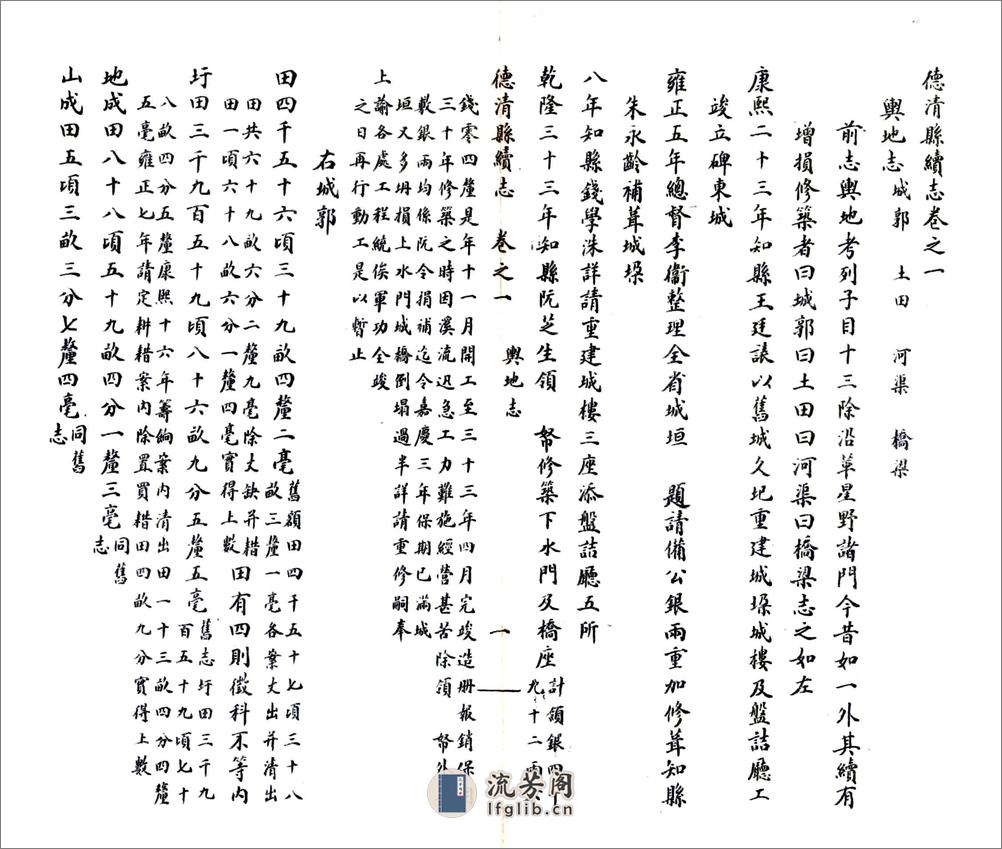 德清縣續志卷之一
輿地志 城郭 土田 河渠 橋梁
前志輿地考列子目十三除沿革星野諸門今昔如一外其續有
增損修築者曰城郭曰土田曰河渠曰橋梁志之如左
康熙二十三年知縣王廷 以舊城久圮重建城垛城樓及盤詰廳工
竣立碑東城
雍正五年總督李衞整理全省城垣 題請備公銀兩重加修葺知縣
朱永齡補葺城垛
八年知縣錢學洙詳請重建城樓三座添盤詰廳五所
乾隆三十三年知縣阮芝生領 帑修築下水門及橋座
計領銀四
九十二兩
德清縣續志 卷之一 輿地志 一
錢零四釐是年十一月開工至三十三年四月完竣造册报銷保
三十年修築之時因溪流迅急工力難施經營甚苦除領 帑外
數銀兩均係阮令捐補迄今嘉慶三年保期已滿城
垣又多坍損上水門城橋倒塌過半詳請重修嗣奉
上諭各處工程統俟軍功全竣
之日再行動工是以暫止
右城郭
田四千五十六頃三十九畝四釐二毫
舊額田四千五十七頃三十八
畝三釐一毫各案丈出并清出
田共六十九畝六分二釐九毫除丈缺并耤
田一頃六十八畝六分一釐四毫實得上數
田有四則徵科不等內
圩田三千九百五十九頃八十六畝九分五釐五毫
舊志圩田三千九
百五十九頃七十
八畝四分五釐康熙十六年籌餉案內清出田一十三畝四分四釐
五毫雍正七年請定耕耤案內除置買耤田四畝九分實得上數
地成田八十八頃五十九畝四分一釐三毫
同舊
志
山成田五頃三畝三分七釐四毫
同舊
志
流芳阁
lfglib.cn